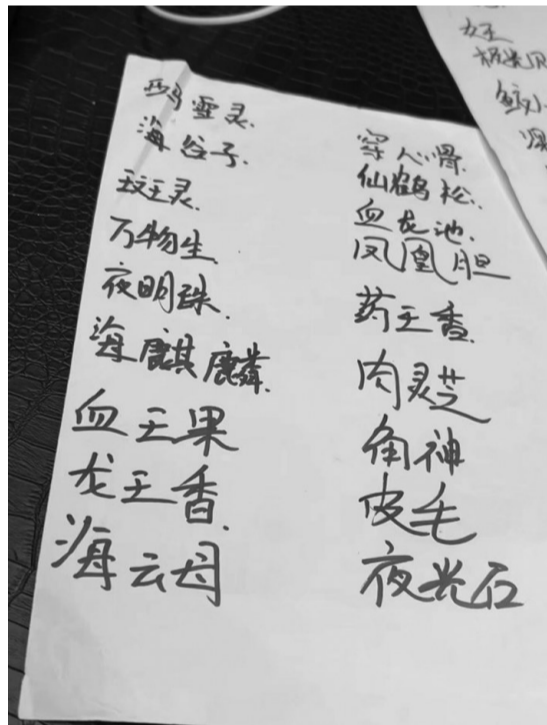 海谷子.
玟王灵.
万物生.
夜明珠.
海麒麟.
血王果
龙王香.
海云母
穿心骨.
仙鹤松.
血龙池.
凤凰胆
药王香.
肉灵芝
角神
皮毛
夜光石
女王